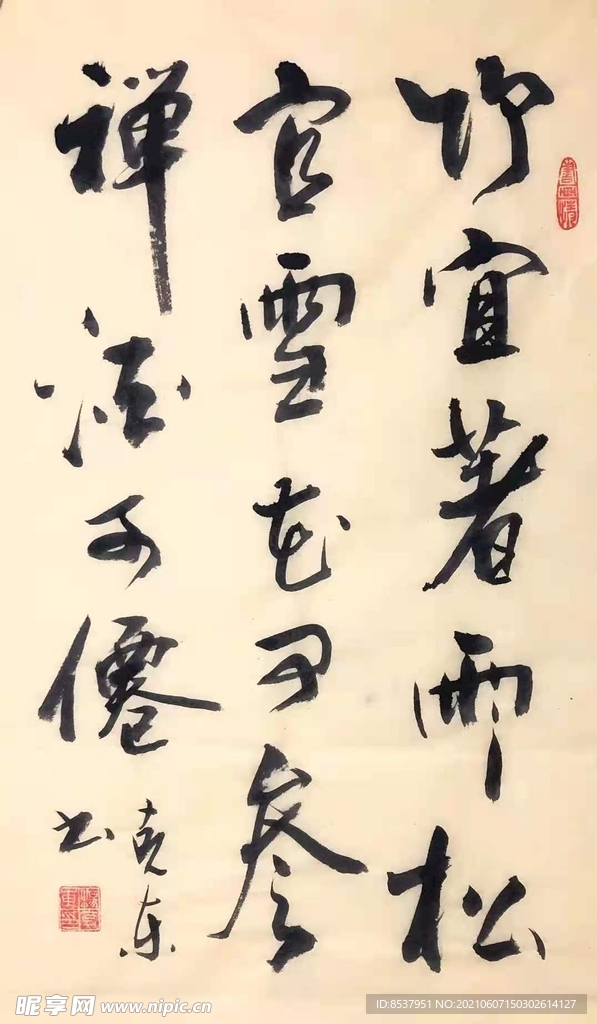 竹宜著雨松
宜雪花可參
禪酒可僊
克东
书
昵享网 www.nipic.cn
ID:8537951 NO:20210607150302614127